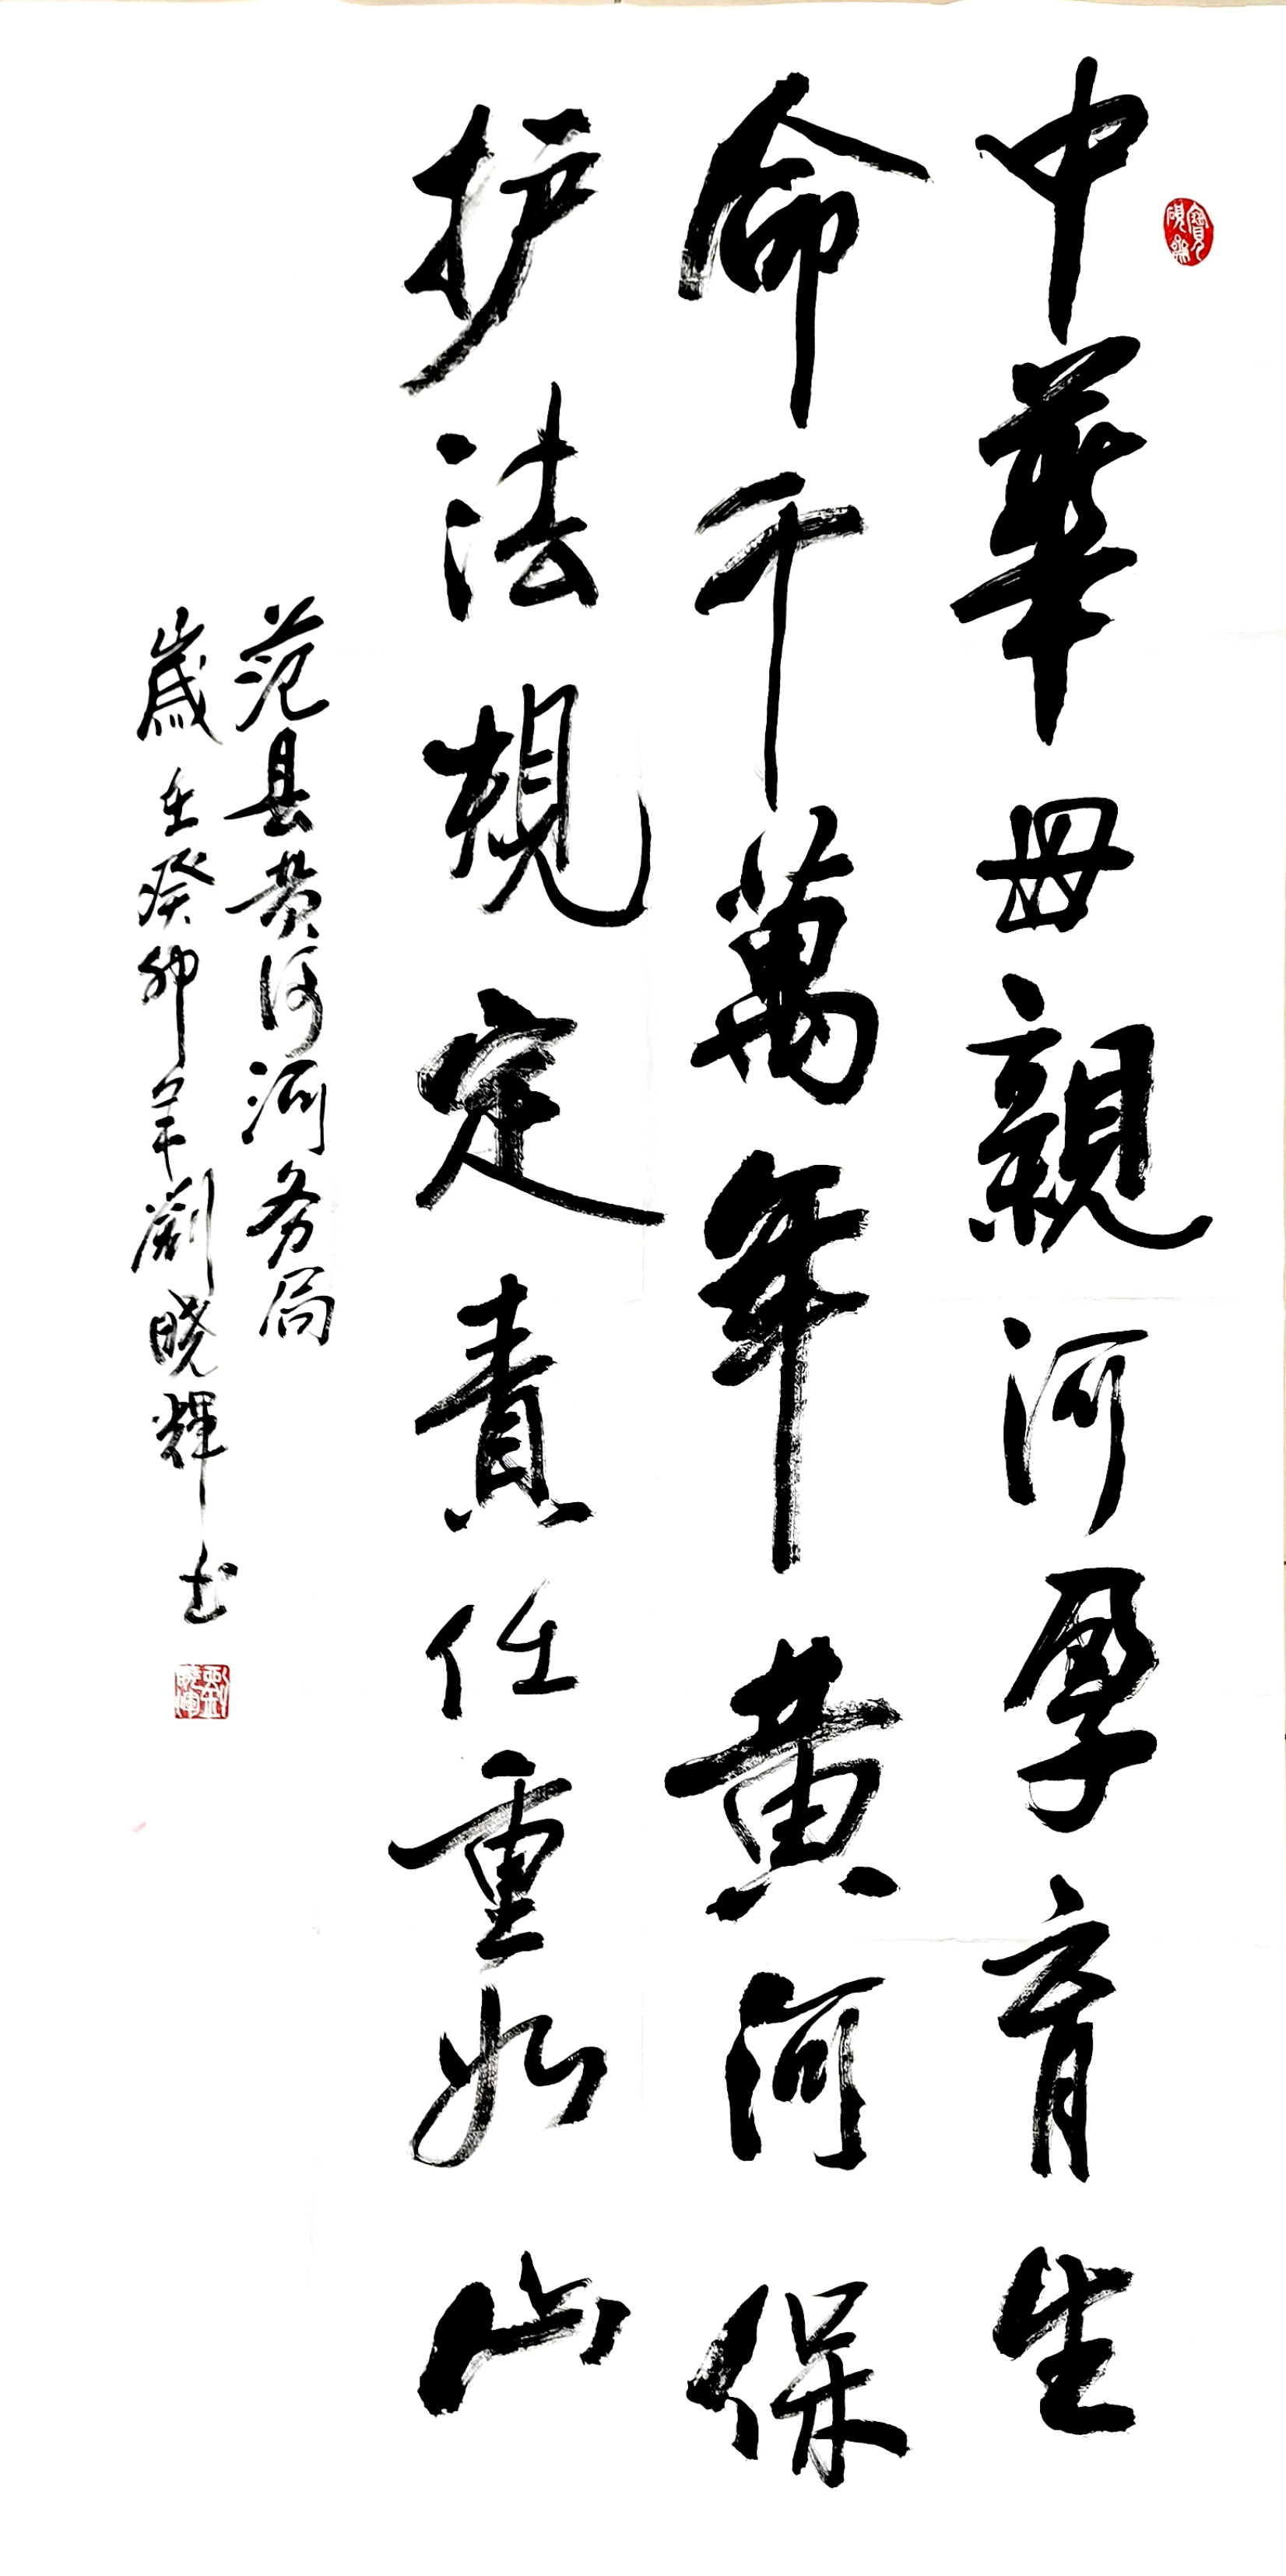 中華母親河孕育生
命千萬年黄河保
护法規定責任重如山
范县黄河河务局
歲在癸卯年劉晓輝书
劉曉輝